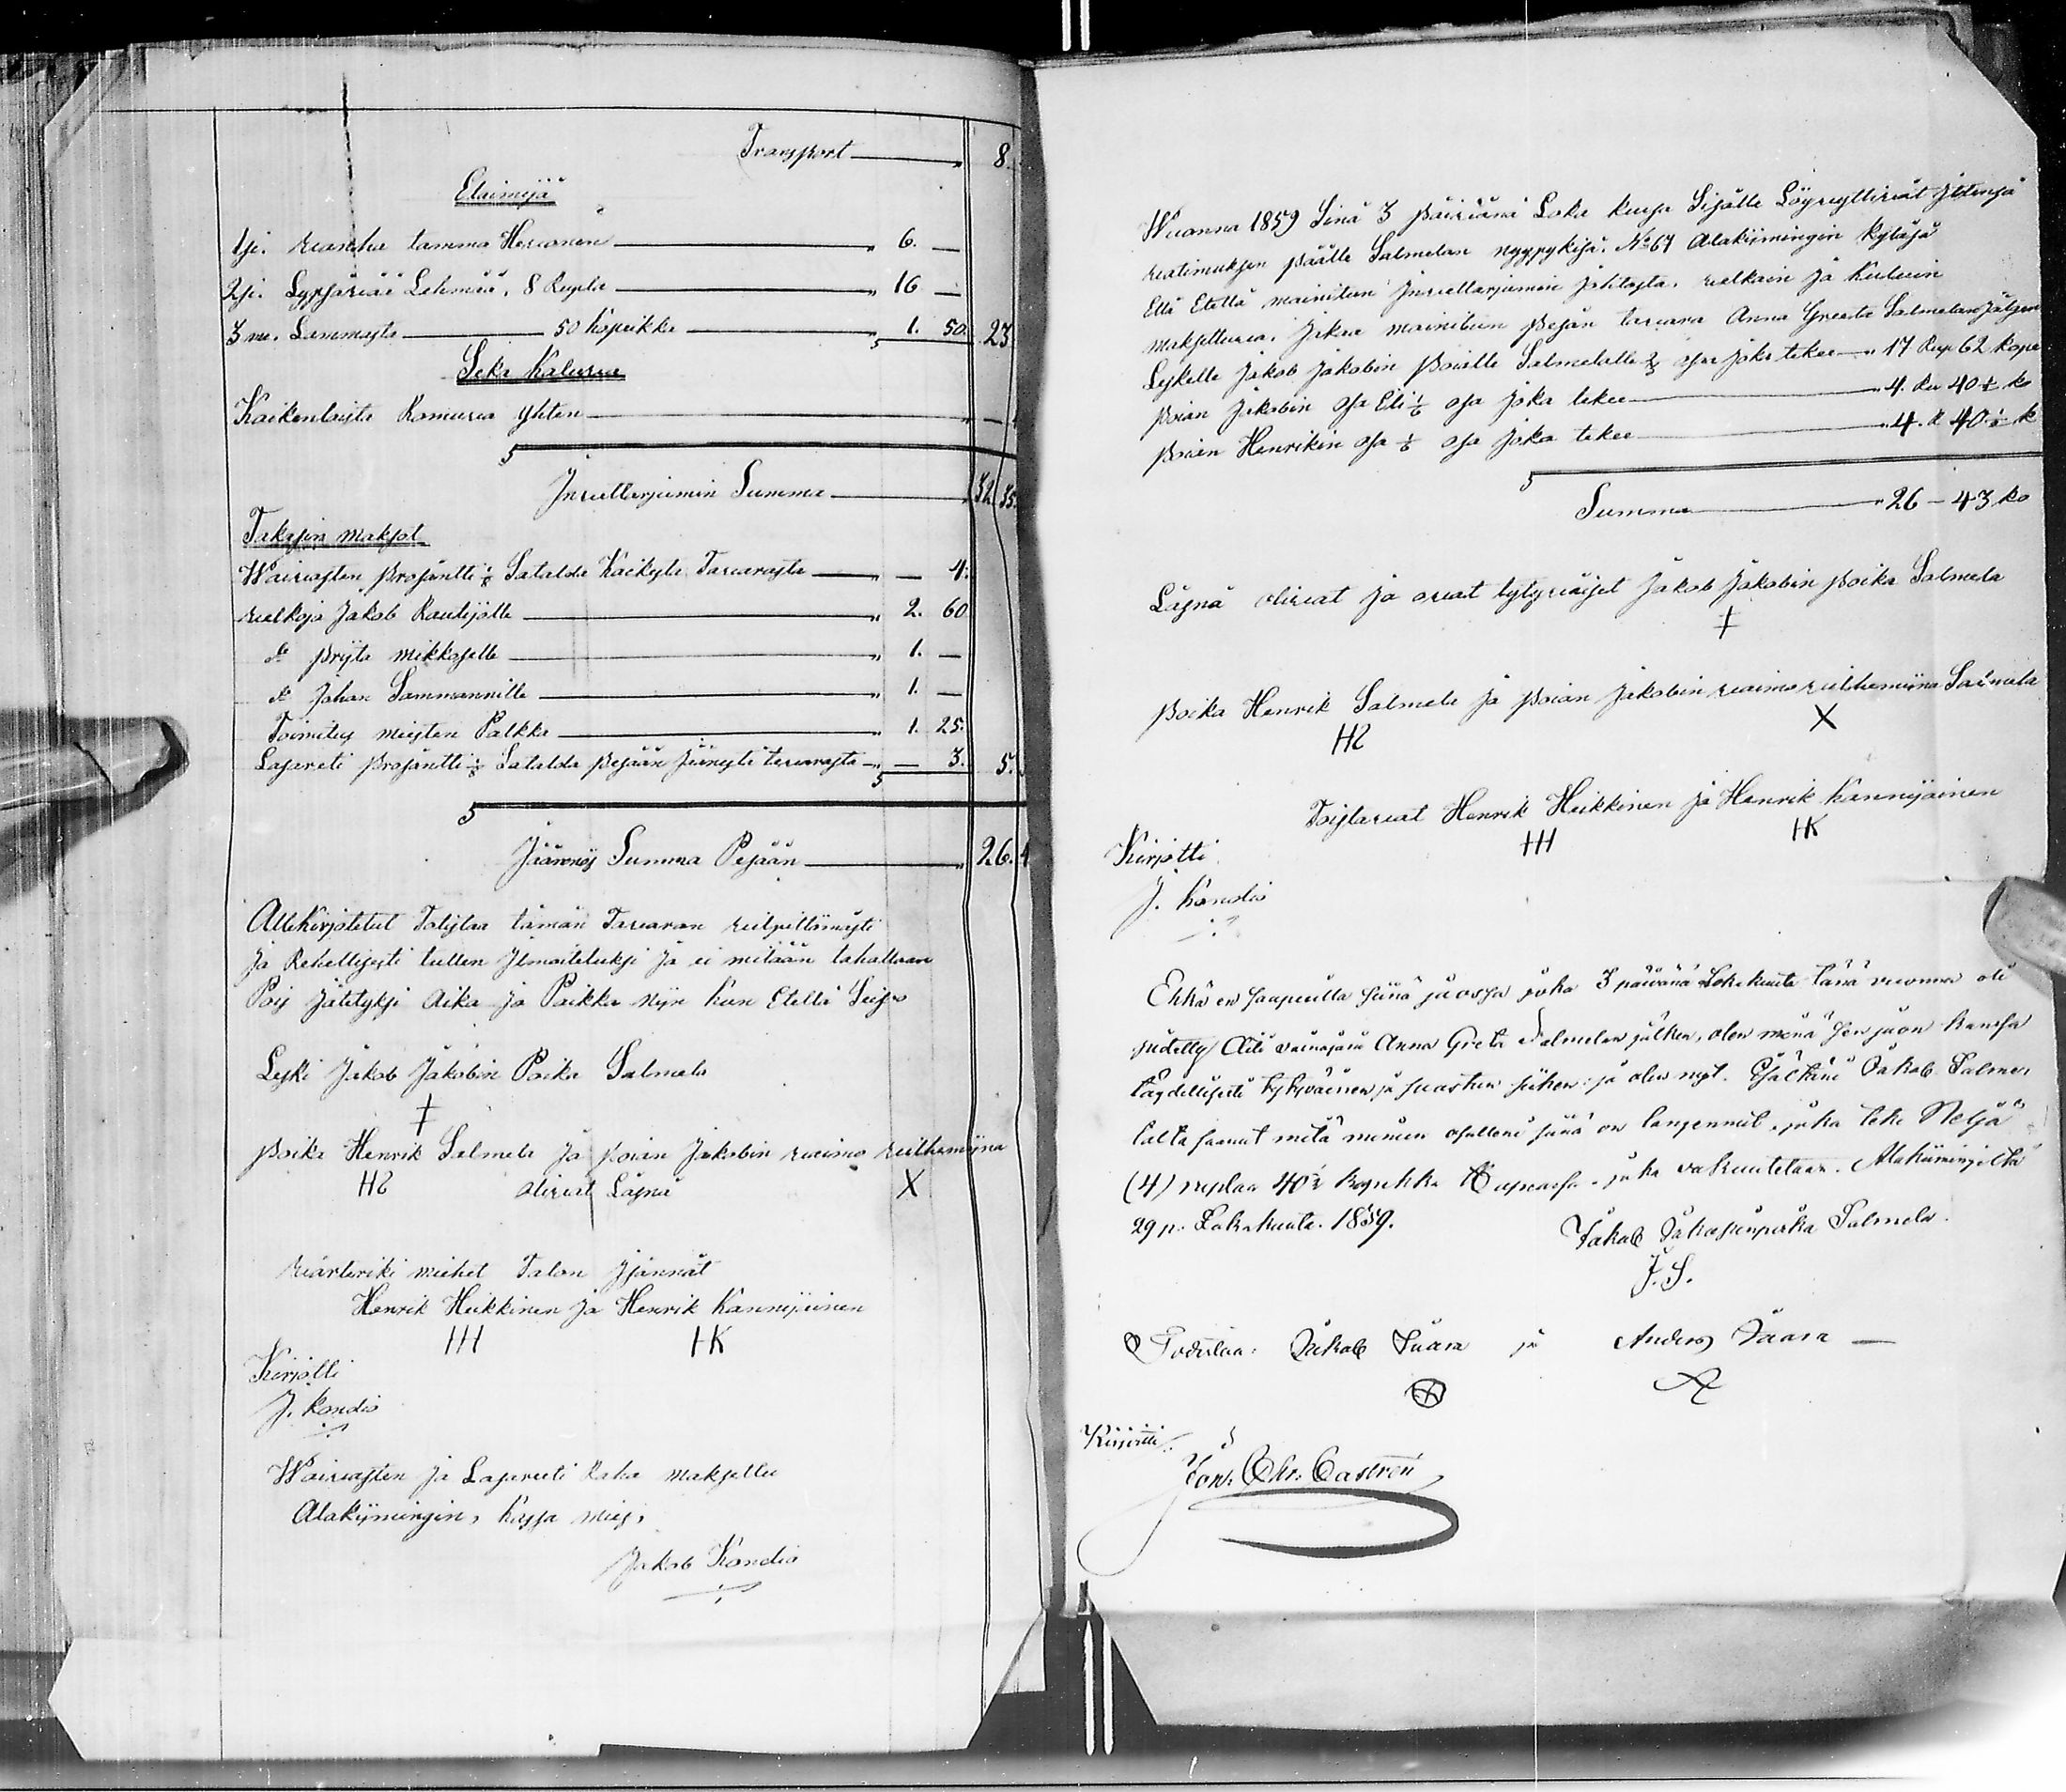 Transport — " 8.
Elaimejä
1ji. wanha tamma Hewonen — " 6. —
2ji. Lypsäwää Lehmää, 8 Rupla — " 16 —
3 me. Lammasta — 50 kopeikka — " 1. 50. 23
Seka Kaluwa
Kaikenlaista Romuwa yhten — " —
Inwellarjumin Summa — " 32 35
Takasin maksot
Waiwasten prosäntti 1/8 Satalda Kaikesta Tawarasta — " — 4.
welkoja Jakob Rautijolle — " 2. 60
do prijta mikkoselle — " 1. —
do Johan Sammannille — " 1. —
Toimitus miesten Palkka — " 1. 25.
Lasareti prosäntti 1/8 Satalda pesään jäänestä tawarasta — " — 3. 5.
Jäännös Summa Pesään — " 26. 4
Allekirjotetut Todistaa tämän Tawaran wilpittömästi
ja Rehellisesti tullen Ilmoitetuksi ja ei mitään tahallaan
Pois jätetyksi aika ja Paikka niin kun Etellä Seiso
Leski Jakob Jakobin Poika Salmela
‡
poika Henrik Salmela ja poian Jakobin waimo wilhemiina
HS oliwat Läsnä X
wärteriki miehet Talon Isännät
Henrik Heikkinen ja Henrik Kannijainen
HH HK
Kirjotti
J. Kondio
Waiwasten ja Lasareeti Raha maksettu
Alakiimingin, kassa mies,
Jakob Kondio
Wuonna 1859 Sinä 3 päiwänä Loka kuusa Sisälle Löysyttiwät Ittensä
waatimuksen päälle Salmelan nyypykisä. No 67 Alakiimingin kyläsä
Että Etellä mainitun Inwellarjumin johtosta. welkain ja kuluin
maksettuwa. Jakaa mainitun pesän tawara Anna Greeta Salmelan Jälgen
Leskelle Jakob Jakobin poialle Salmelalle 2/3 osa joka tekee — " 17 Rup 62 kope
poian Jakobin osa Eli 1/6 osa joka tekee — " 4. Ru 40 1/2 ko
poian Henrikin osa 1/6 osa joka tekee — " 4. R 40 1/2 k
Summa — " 26 – 43 ko
Läsnä oliwat ja owat tytywäiset Jakob Jakobin poika Salmela
‡
poika Henrik Salmela ja poian Jakobin waimo wilhemiina Salmela
HS X
Toistawat Henrik Heikkinen ja Henrik Kannijainen
HH HK
Kirjotti
J. Kondio
Ehkä en saapuilla siinä jaossa joka 3 päiwänä Lokakuuta tänä vuonna oli
pidetty Äiti vainajani Anna Greta Salmelan jälken, olen minä sen jaon kanssa
täydellisesti tyhyväinen ja suostun siihen ja olen nyt Isältäni Jakob Salme-
lalta saanut mitä minun osalleni siinä on langennut, joka teke Neljä
(4) ruplaa 40 1/2 kopekka Hopeassa, joka vakuutetaan. Alakiimingiltä
29 p. Lokakuuta. 1859.
Jakob Jakobinpoika Salmela.
J. S.
Todistaa: Jakob Juara ja Anders Juara —
Kirjoitti:
Jon. Chr. Castrén